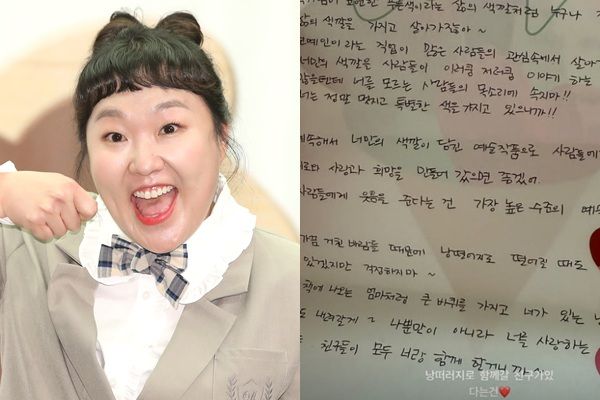 삶의 색깔을 가지고 살아가잖아 ~
연예인이라는 직업이 많은 사람들의 관심속에서 살아
너만의 색깔을 사람들이 이러쿵 저러쿵 이야기 하는
많을텐데 너를 모르는 사람들의 못소리에 속지마!!
너는 정말 멋지고 특별한 색을 가지고 있으니까!!
계속해서 너만의 색깔이 담긴 예술작품으로 사람들에게
사랑과 희망을 만들어 갔으면 좋겠어.
사람들에게 웃음을 준다는 건 가장 높은 수준의 예
가끔 거친 바람들 때문에 낭떠러지로 떨어질 때도
있겠지만 걱정하지마 ~
책에 나오는 엄마처럼 큰 바퀴를 가지고 너가 있는
내려갈게 ~ 나뿐만이 아니라 너를 사랑하는
친구들이 모두 너랑 함께 할거니까
낭떠러지로 함께갈 친구가있
다는건❤️